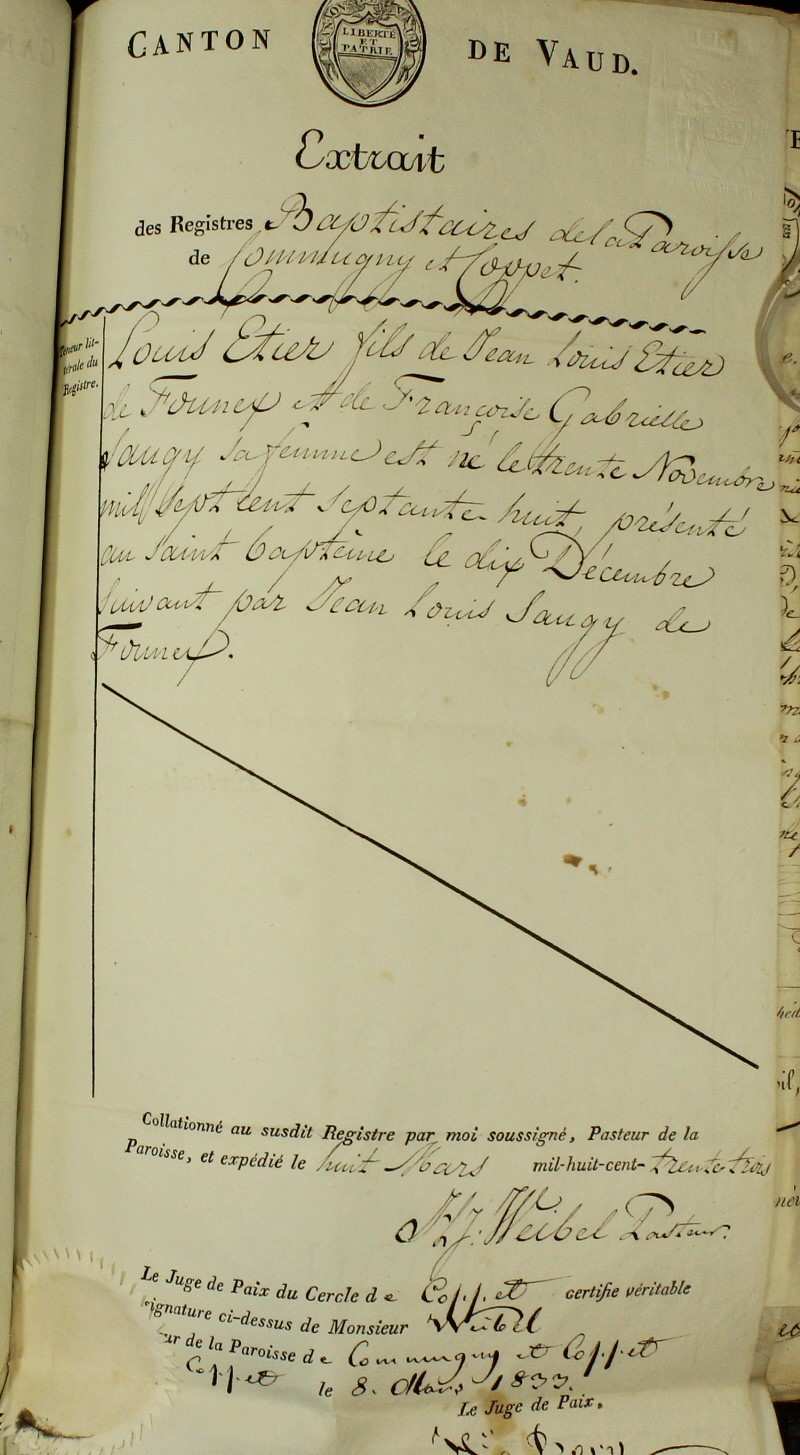 CANTON DE VAUD.
LIBERTÉ
ET
PATRIE
Extrait
des Registres Baptistaires de la Paroisse
de Commugny et Coppet.
Teneur lit-
térale du
Registre.
Louis Etier fils de Jean Louis Etier
de Founex et de Françoise Gabrielle
Saugy sa femme est né le trente Novembre
mil sept cent septante-huit, présenté
au Saint Baptême le dix Décembre
suivant par Jean Louis Saugy de
Founex.
Collationné au susdit Registre par moi soussigné, Pasteur de la
Paroisse, et expédié le huit Mars mil-huit-cent-trente trois
Weibel Pasteur.
Le Juge de Paix du Cercle de Coppet certifie véritable
signature ci-dessus de Monsieur Weibel
de la Paroisse de Commugny et Coppet
Coppet le 8. Mars 1833.
Le Juge de Paix,